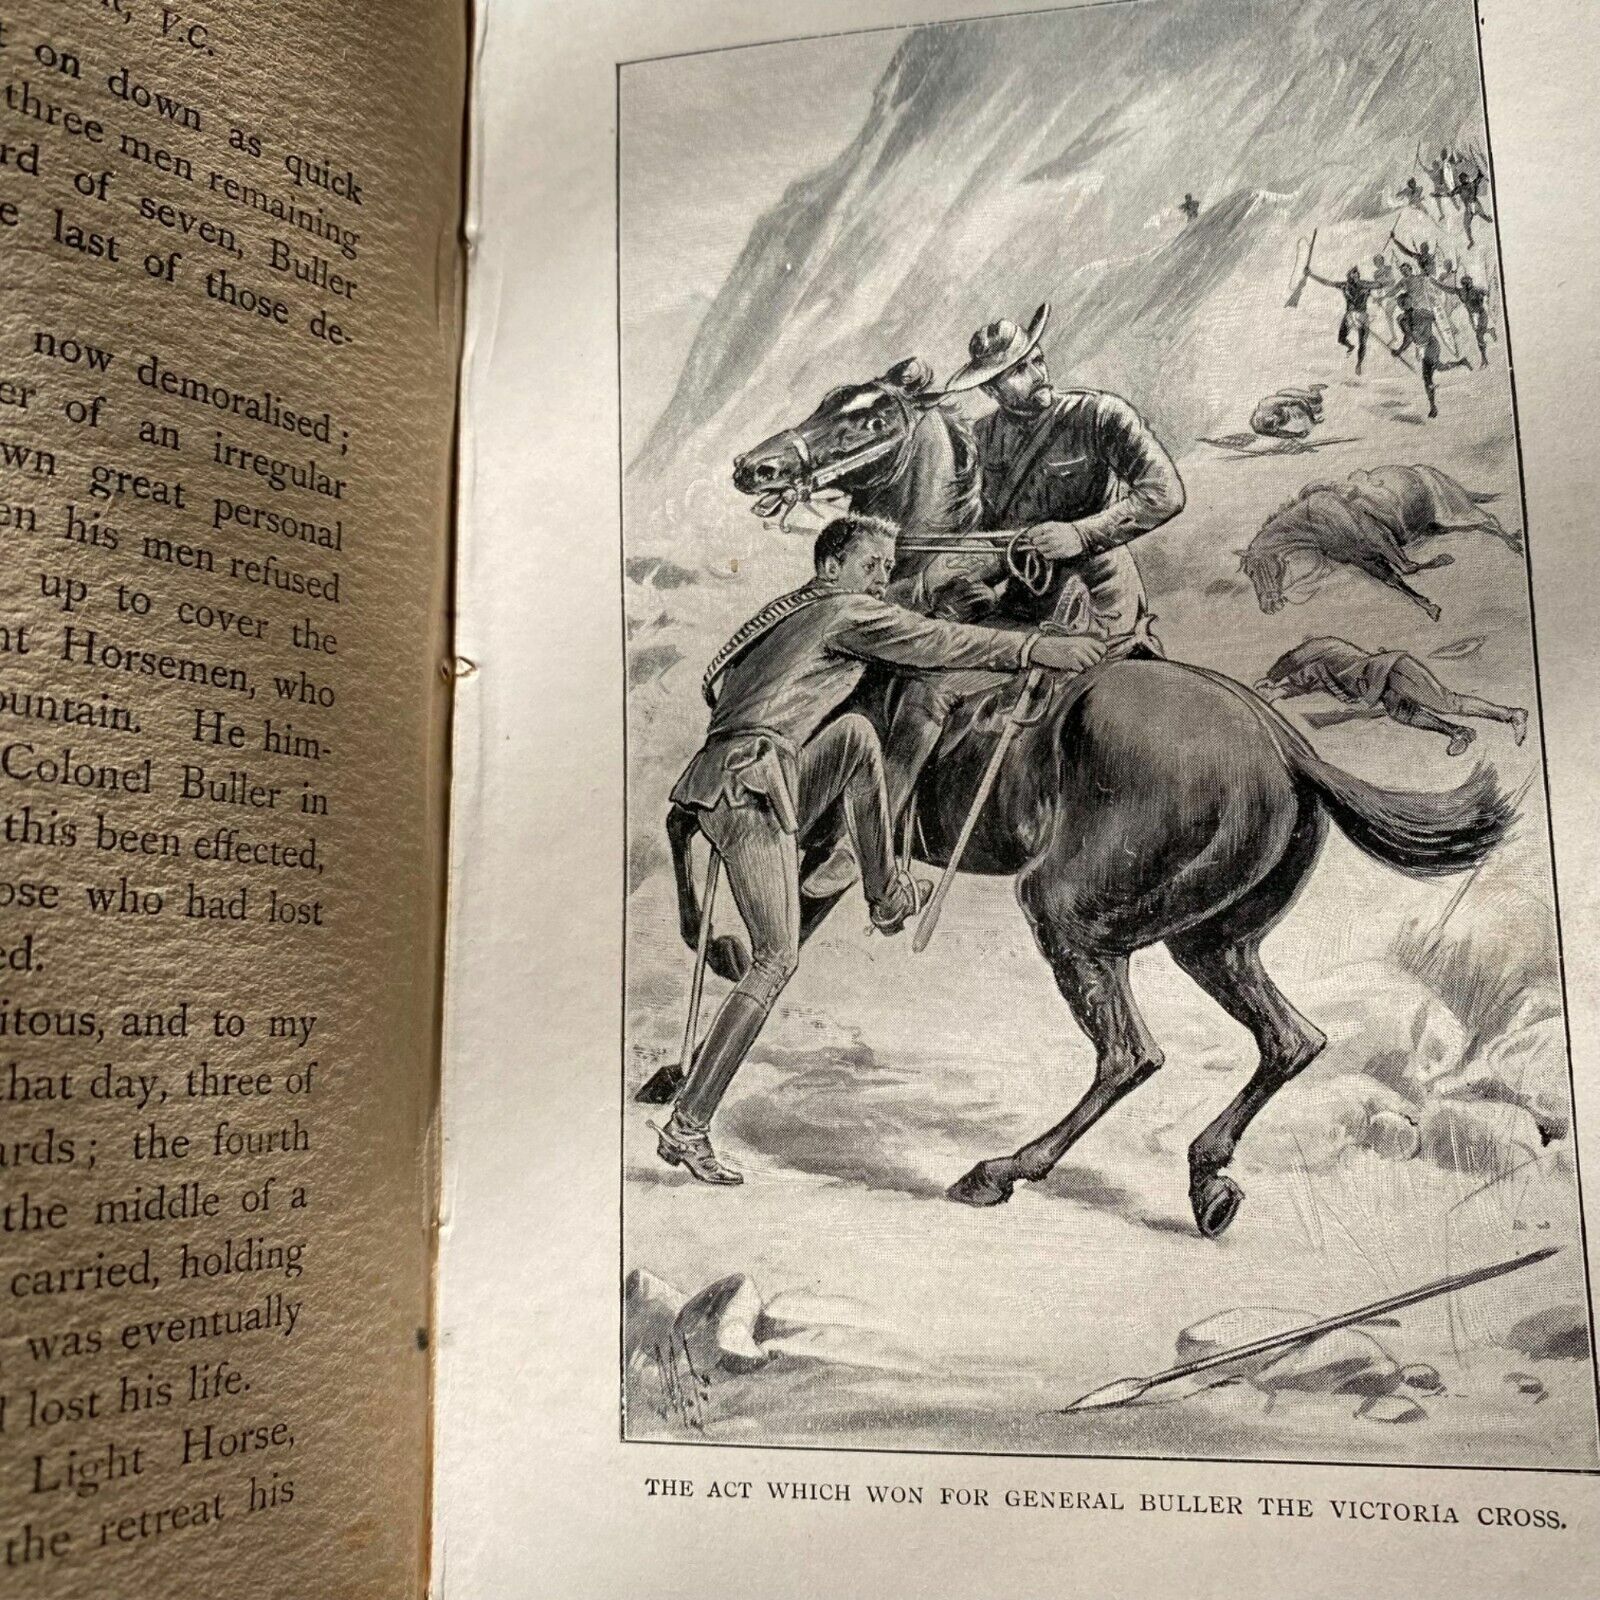 V.C.
on down as quick
three men remaining
of seven, Buller
last of those de-
now demoralised;
of an irregular
great personal
his men refused
up to cover the
Horsemen, who
He him-
Colonel Buller in
this been effected,
who had lost
and to my
that day, three of
the fourth
the middle of a
carried, holding
was eventually
lost his life.
Light Horse,
the retreat his
THE ACT WHICH WON FOR GENERAL BULLER THE VICTORIA CROSS.